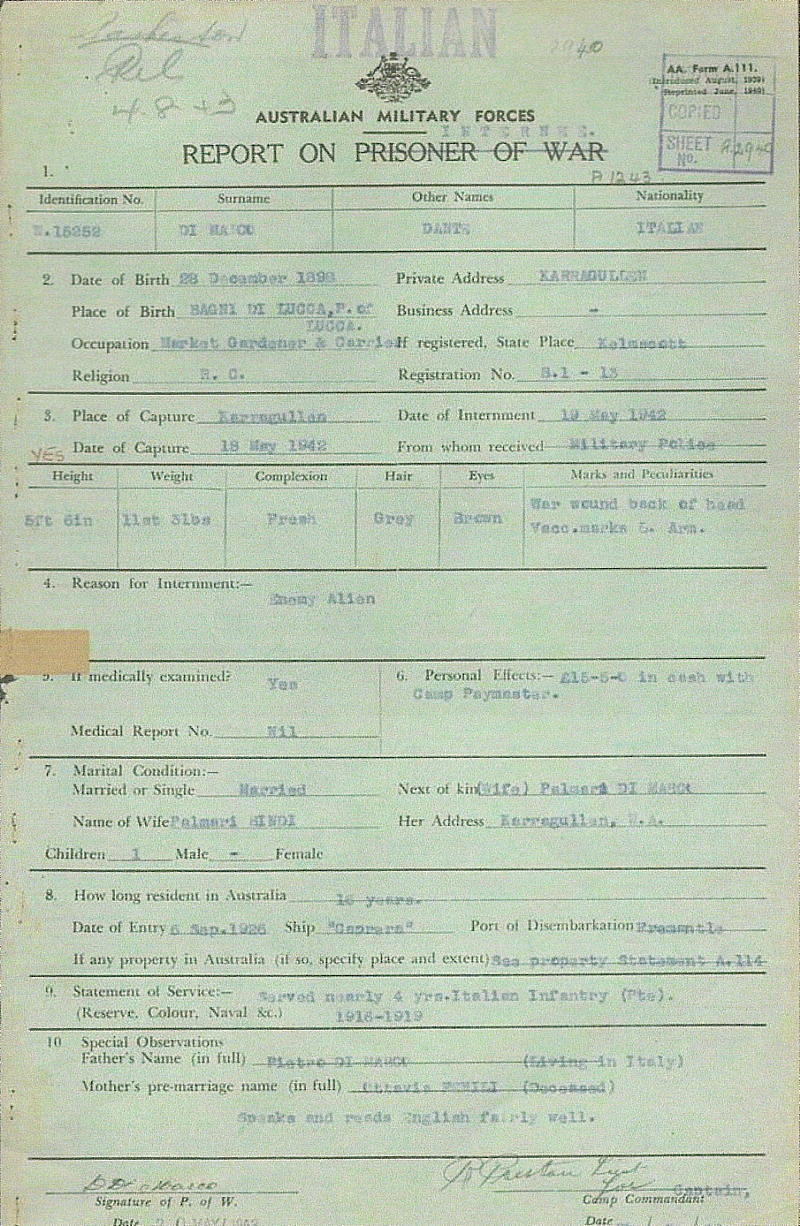 ITALIAN
4.8.43
AA. Form A.111.
(Introduced August, 1939)
(Reprinted June, 1940)
COPIED
SHEET No. A2940
AUSTRALIAN MILITARY FORCES
INTERNEE.
REPORT ON PRISONER OF WAR
1.
Identification No. Surname Other Names Nationality
W.15252 DI MARCO DANTE ITALIAN
2. Date of Birth 28 December 1898 Private Address KARRAGULLEN
Place of Birth BAGNI DI LUCCA,P.of Business Address -
LUCCA.
Occupation Market Gardener & Carrier If registered, State Place Kelmscott
Religion R. C. Registration No. S.1 - 13
3. Place of Capture Karragullen Date of Internment 19 May 1942
YES Date of Capture 18 May 1942 From whom received Military Police
Height Weight Complexion Hair Eyes Marks and Peculiarities
5ft 6in 11st 3lbs Fresh Grey Brown War wound back of head
Vacc.marks L. Arm.
4. Reason for Internment:—
Enemy Alien
5. If medically examined? Yes 6. Personal Effects:— £15-5-0 in cash with
Camp Paymaster.
Medical Report No. Nil
7. Marital Condition:—
Married or Single Married Next of kin (Wife) Palmari DI MARCO
Name of Wife Palmari Her Address Karragullen, W.A.
Children 1 Male - Female
8. How long resident in Australia years.
Date of Entry Sep.1926 Ship "Caprera" Port of Disembarkation Fremantle
If any property in Australia (if so, specify place and extent) See property Statement A.114
9. Statement of Service:— Served nearly 4 yrs.Italian Infantry (Pte).
(Reserve, Colour, Naval &c.) 1916-1919
10 Special Observations
Father's Name (in full) Pietro DI MARCO (Living in Italy)
Mother's pre-marriage name (in full) Ottavia (Deceased)
Speaks and reads English fairly well.
D Di Marco Preston Lieut
for Captain,
Signature of P. of W. Camp Commandant
Date 20 MAY 1942 Date